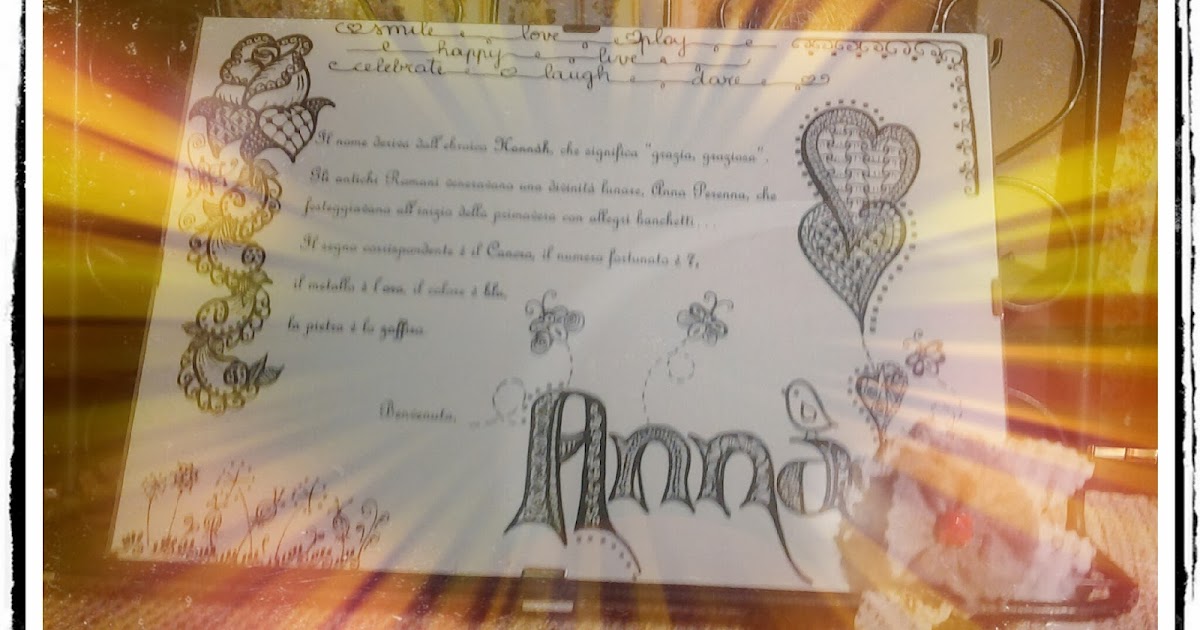 smile love play
happy live
celebrate laugh dare
Il nome deriva dall'ebraico Hannáh, che significa "grazia, graziosa".
Gli antichi Romani veneravano una divinità lunare, Anna Perenna, che
festeggiavano all'inizio della primavera con allegri banchetti...
Il segno corrispondente è il Cancro, il numero fortunato è 7,
il metallo è l'oro, il colore è blu,
la pietra è lo zaffiro.
Benvenuta,
Anna